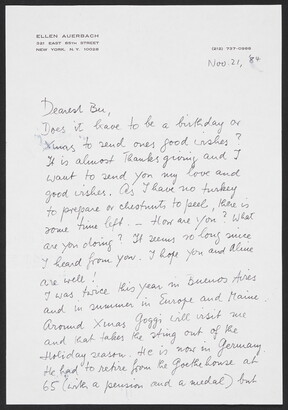 ELLEN AUERBACH
531 EAST 85TH STREET
NEW YORK, N.Y. 10028
(212) 737-0988
Nov. 21, '84
Dearest Bu,
Does it have to be a birthday or
Xmas to send ones good wishes?
It is almost Thanksgiving and I
want to send you my love and
good wishes. As I have no turkey
to prepare or chestnuts to peel, there is
some time left. – How are you? What
are you doing? It seems so long since
I heard from you. I hope you and Aline
are well!
I was twice this year in Buenos Aires
and in summer in Europe and Maine.
Around Xmas Goggi will visit me
and that takes the sting out of the
Holiday season. He is now in Germany
He had to retire from the Goethehouse at
65 (with a pension and a medal) but